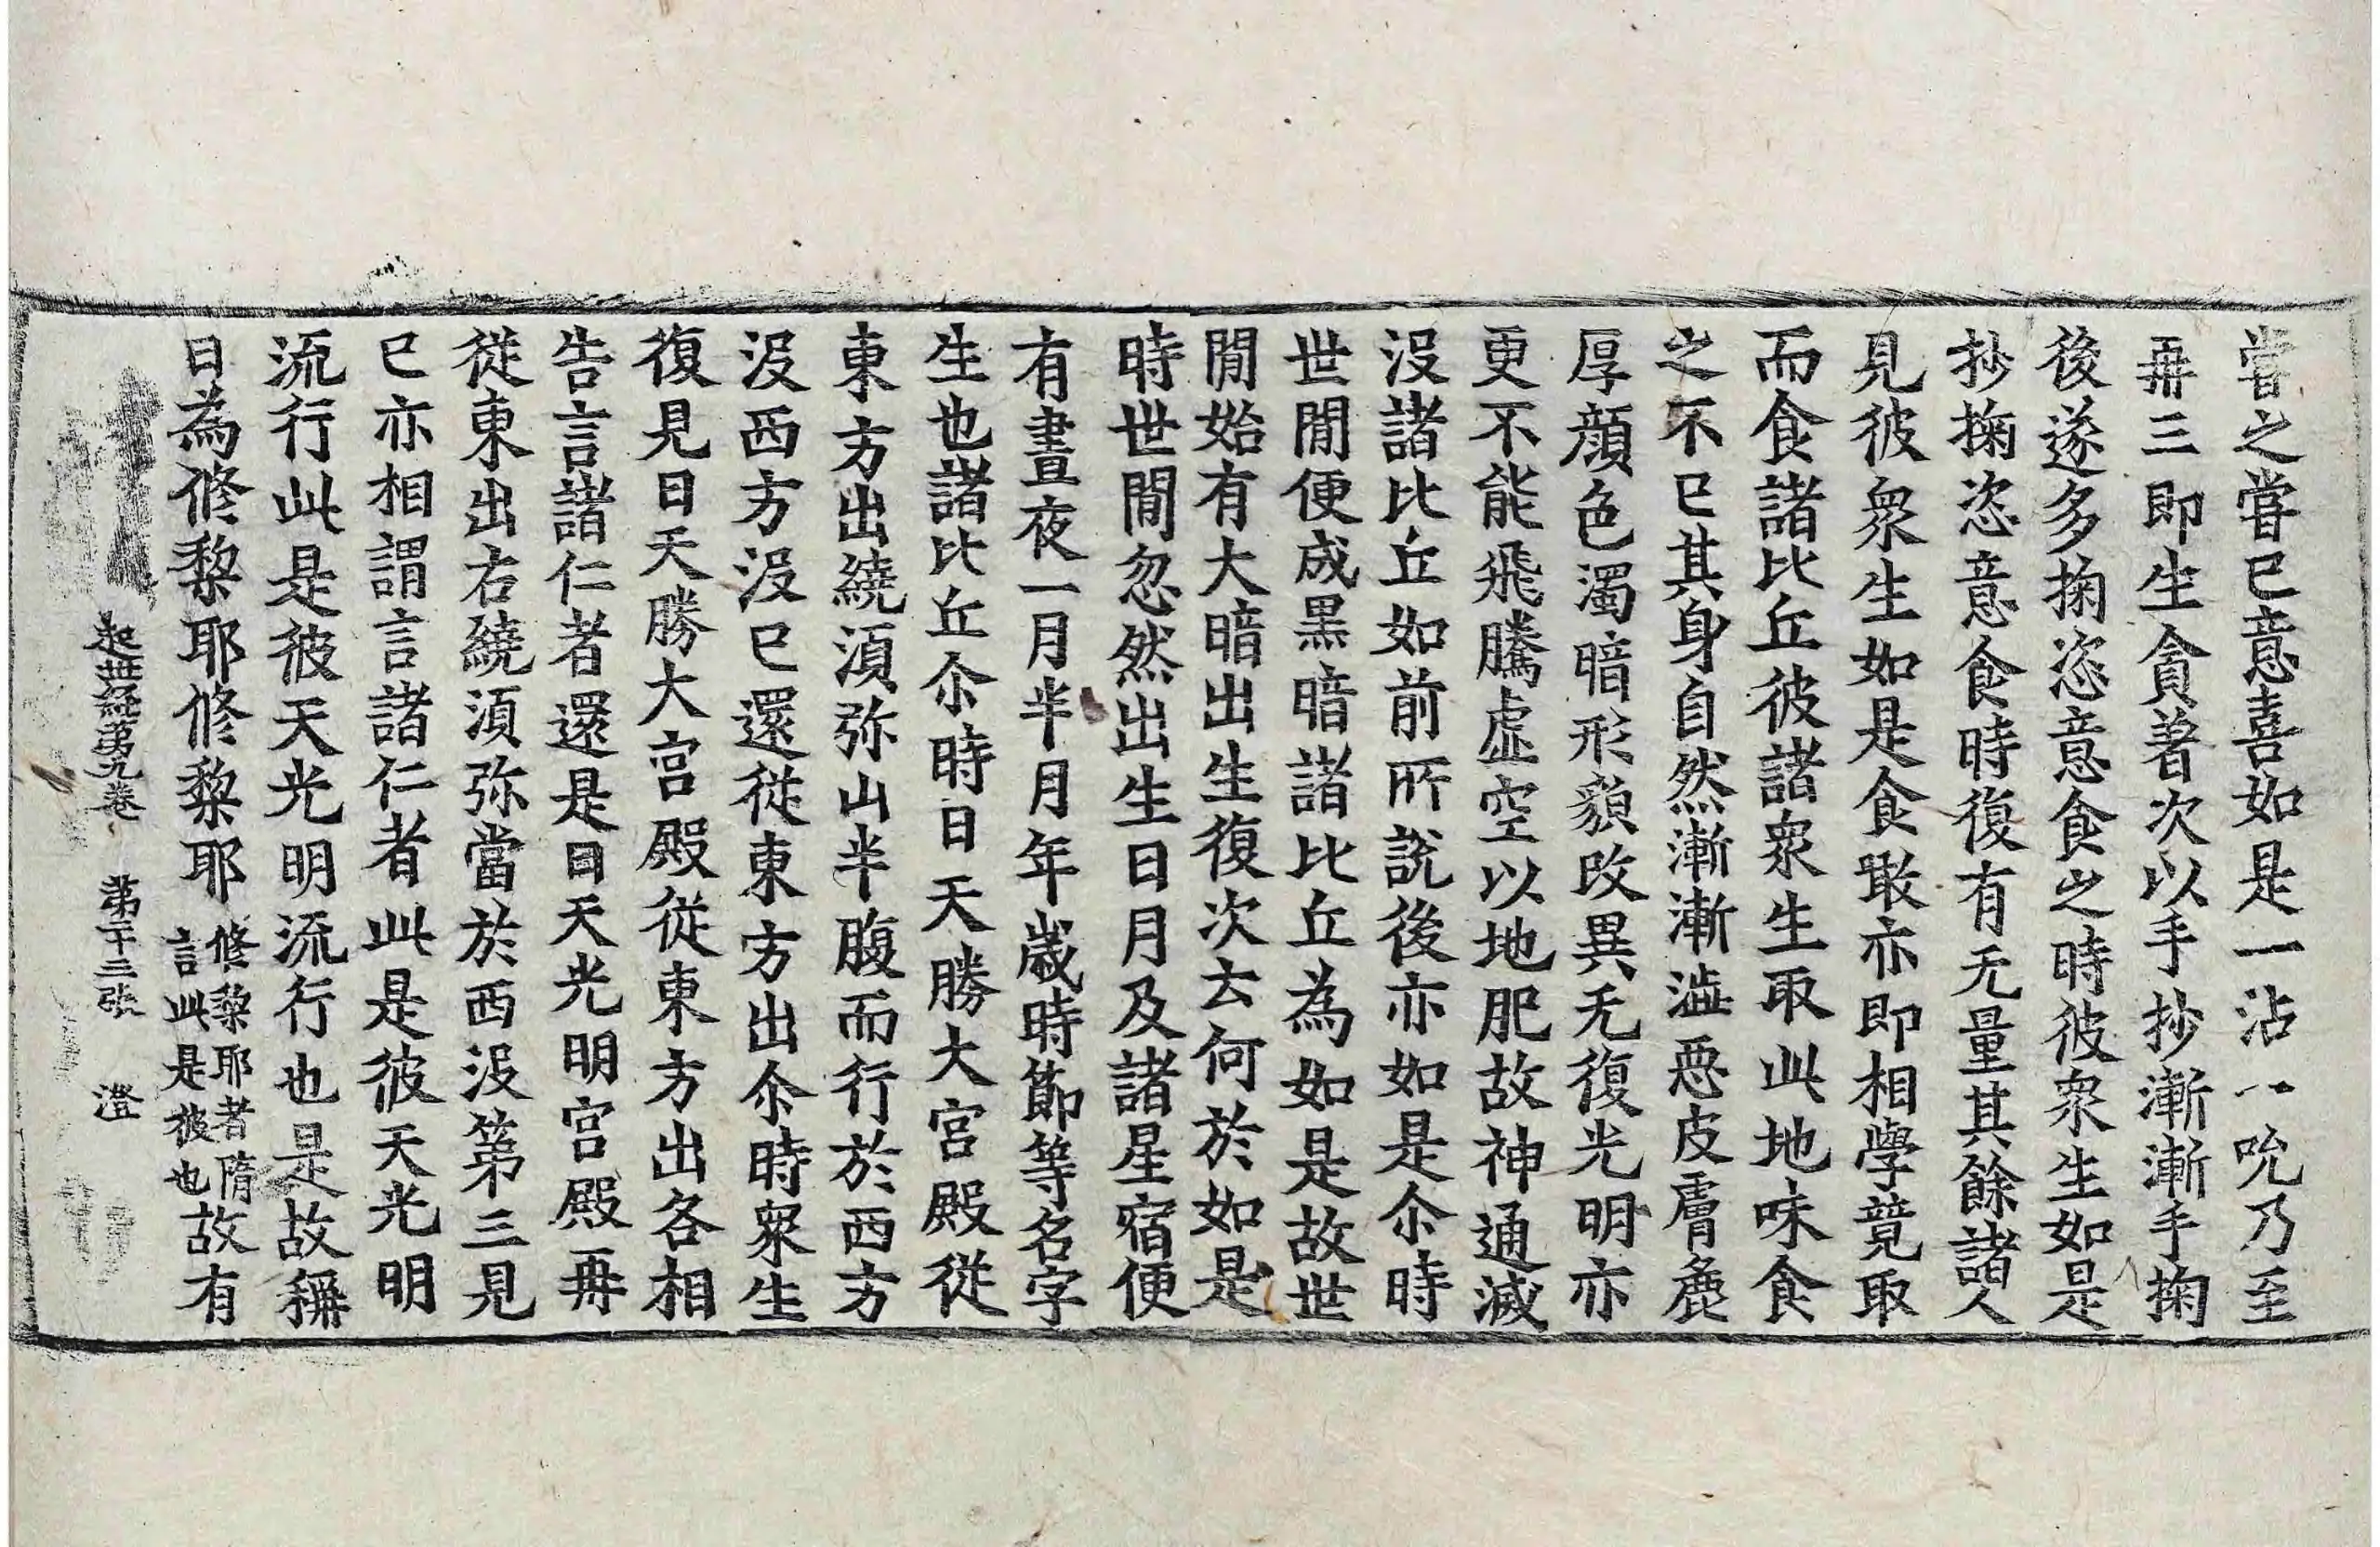 嘗之嘗已意喜如是一沾一吮乃至
再三即生貪著次以手抄漸漸手掬
後遂多掬恣意食之時彼衆生如是
抄掬恣意食時復有无量其餘諸人
見彼衆生如是食噉亦即相學競取
而食諸比丘彼諸衆生取此地味食
之不已其身自然漸漸澁惡皮膚麁
厚顔色濁暗形貌改異无復光明亦
更不能飛騰虛空以地肥故神通滅
没諸比丘如前所說後亦如是尒時
世閒便成黒暗諸比丘為如是故世
閒始有大暗出生復次云何於如是
時世閒忽然出生日月及諸星宿便
有晝夜一月半月年歳時節等名字
生也諸比丘尒時日天勝大宮殿從
東方出繞須弥山半腹而行於西方
没西方没已還從東方出尒時衆生
復見日天勝大宮殿從東方出各相
告言諸仁者還是日天光明宮殿再
從東出右繞須弥當於西没第三見
已亦相謂言諸仁者此是彼天光明
流行此是彼天光明流行也是故稱
日為修黎耶修黎耶修黎耶者隋言此是彼也故有
起世經第九卷 第十二張 澄